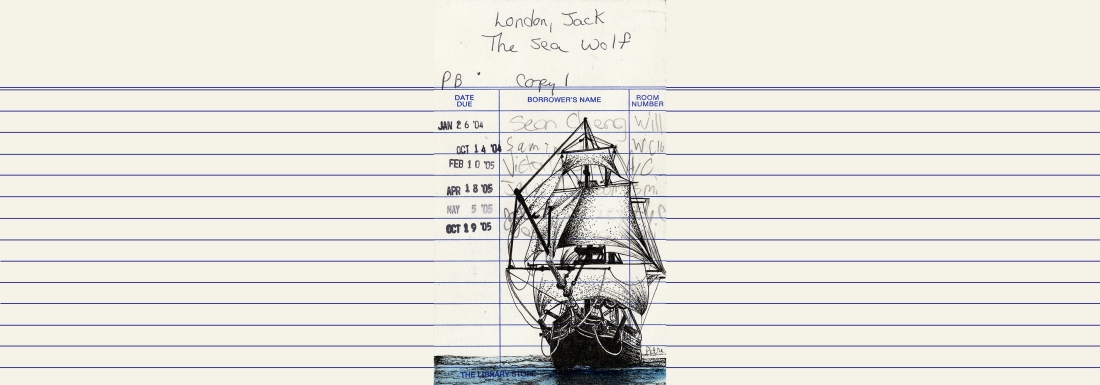 London, Jack
The Sea Wolf
PB Copy 1
DATE DUE BORROWER'S NAME ROOM NUMBER
JAN 26 '04 Sean Cheng Will
OCT 14 '04 Sami
FEB 10 '05
APR 18 '05
MAY 5 '05
OCT 19 '05
THE LIBRARY STORE